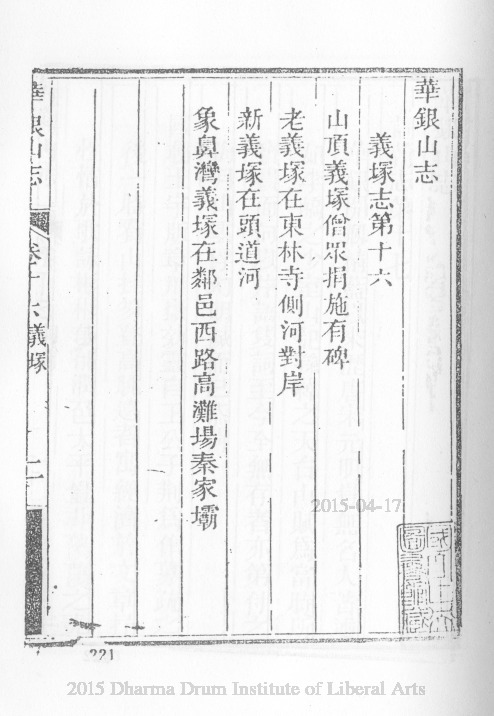 華銀山志
義塚志第十六
山頂義塚僧眾捐施有碑
老義塚在東林寺側河對岸
新義塚在頭道河
象鼻灣義塚在鄰邑西路高灘場秦家壩
華銀山志
卷十六義塚
二
2015-04-17
221
2015 Dharma Drum Institute of Liberal Arts